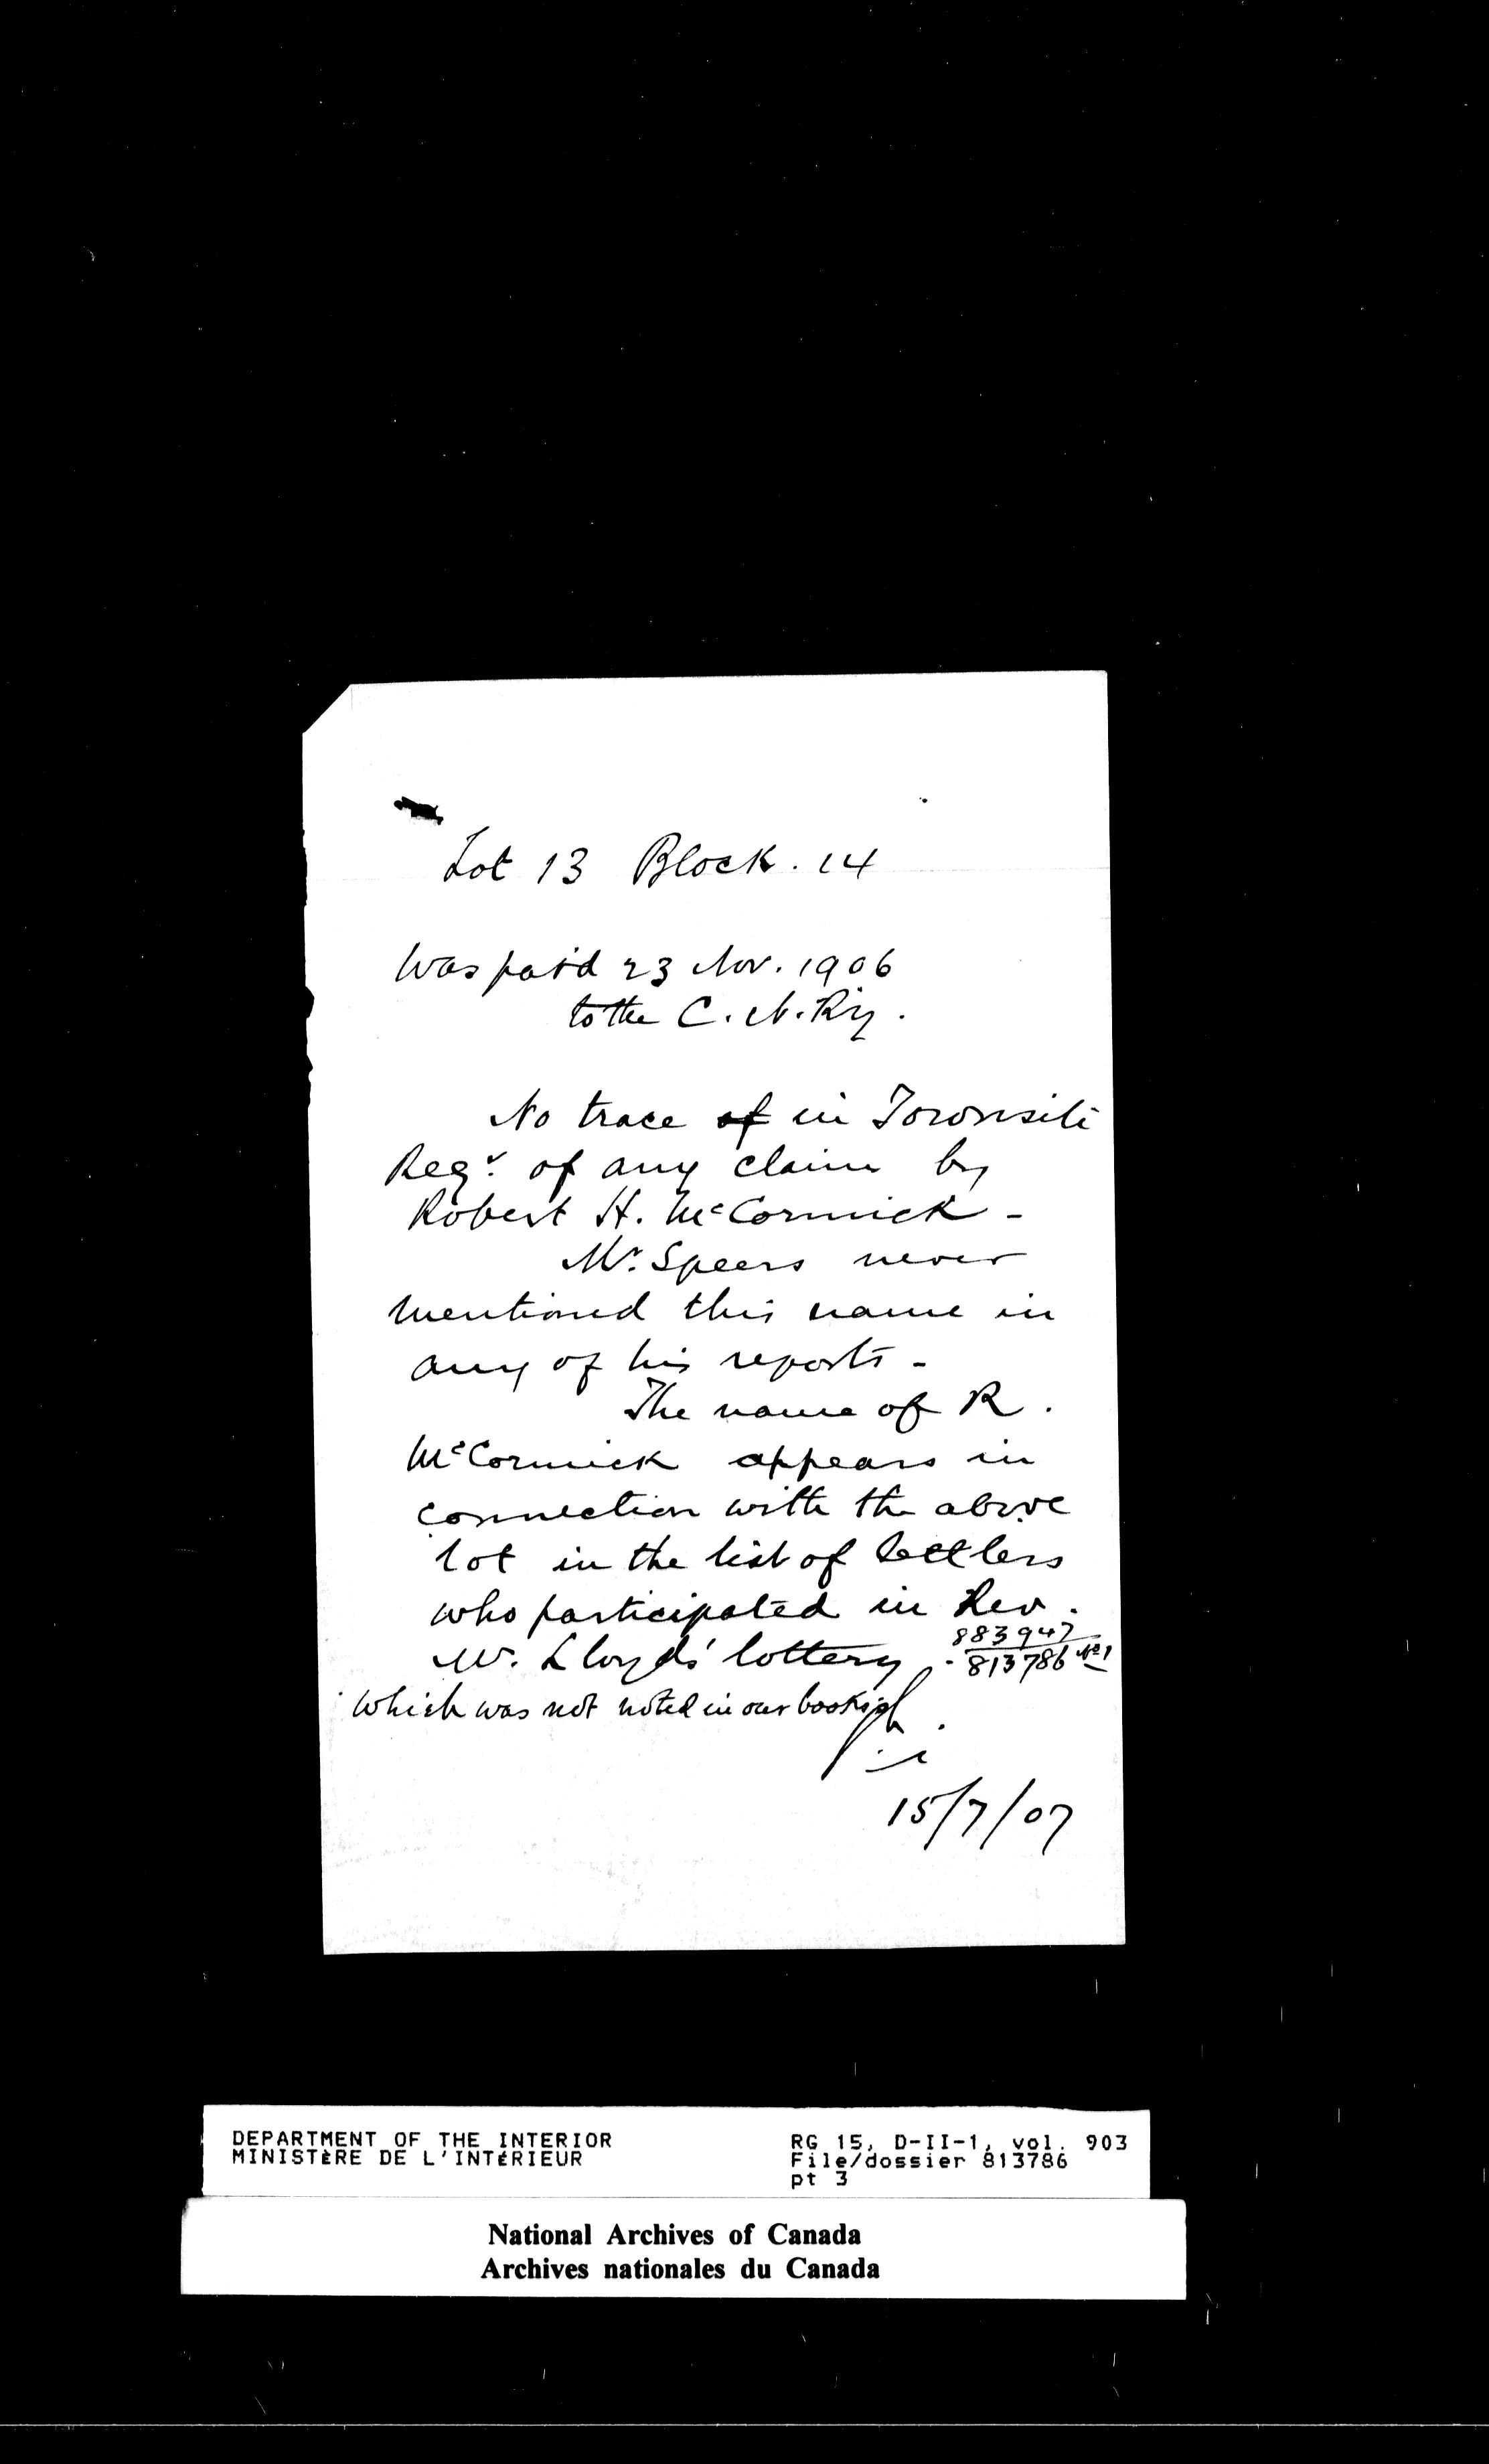 Lot 13 Block. 14
Was paid 23 Nov. 1906
to the C. N. Ry.
No trace of in Townsite
Regr. of any claim by
Robert H. McCormick -
Mr. Speers never
mentioned this name in
any of his reports -
The name of R.
McCormick appears in
connection with the above
lot in the list of settlers
who participated in Rev.
Mr. Lloyds' lottery - 883947
813786 No 1
which was not noted in our books
15/7/07
DEPARTMENT OF THE INTERIOR
MINISTÈRE DE L'INTÉRIEUR
RG 15, D-II-1, vol. 903
File/dossier 813786
pt 3
National Archives of Canada
Archives nationales du Canada